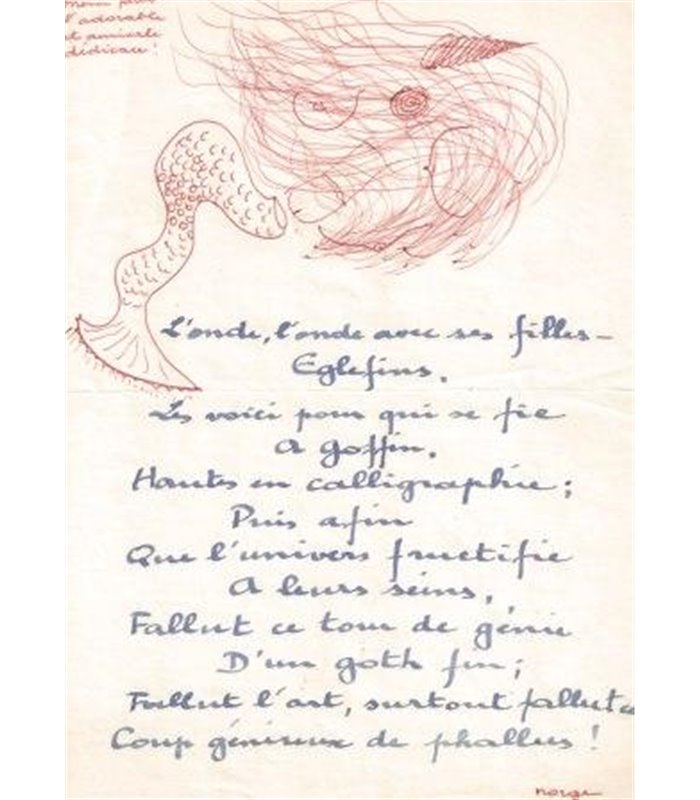 pour
l'adorable
et amicale
dédicace !
L'onde, l'onde avec ses filles-
Eglefins.
Les voici pour qui se fie
A goffin.
Hautes en calligraphie ;
Puis afin
Que l'univers fructifie
A leurs seins,
Fallut ce tour de génie
D'un goth fin ;
Fallut l'art, surtout fallut ce
Coup généreux de phallus !
norge